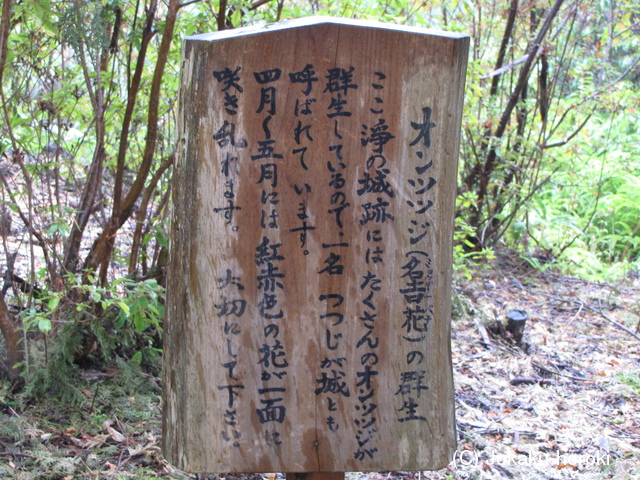 オンツツジ(名吉花)の群生
ここ浄の城跡にはたくさんのオンツツジが
群生しているので、一名 つつじが城とも
呼ばれています。
四月〜五月には紅赤色の花が一面に
咲き乱れます。 大切にして下さい。
(C) Jokaku-horoki